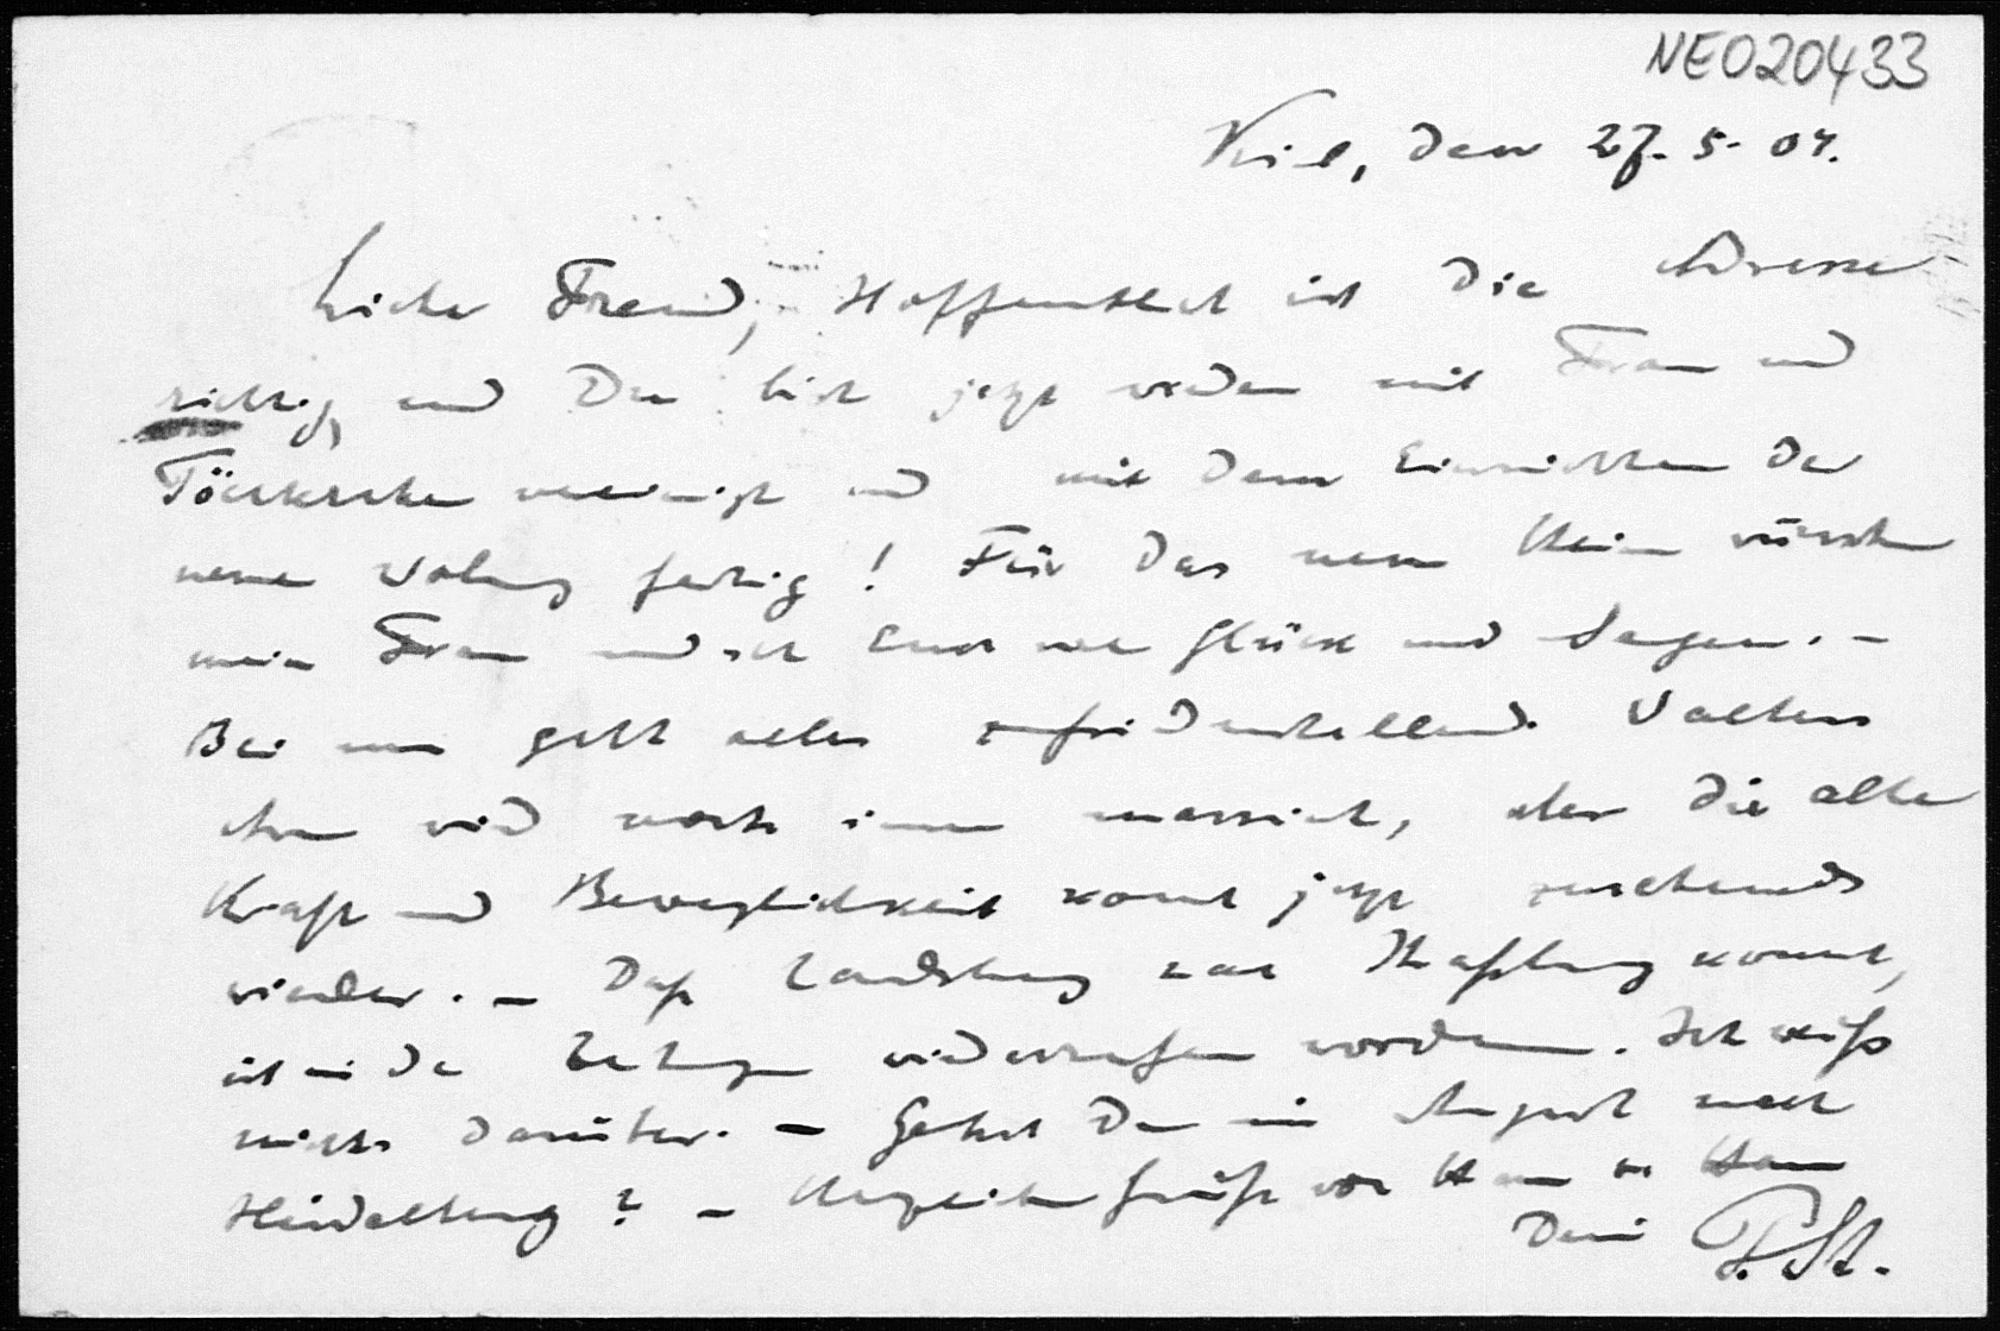 NE020433
Kiel, den 27. 5. 04.
Lieber Freund, Hoffentlich ist die Adresse
richtig, und Du bist jetzt wieder mit Frau und
Töchterchen vereinigt und mit dem Einrichten der
neuen Wohnung fertig! Für das neue Heim wünschen
meine Frau und ich Euch viel Glück und Segen. –
Bei uns geht alles zufriedenstellend. Walters
Arm wird noch immer massiert, aber die alte
Kraft und Beweglichkeit kommt jetzt zusehends
wieder. – Daß Landsberg nach Straßburg kommt,
ist in den Zeitungen widerrufen worden. Ich weiß
nichts darüber. – Gehst Du im August nach
Heidelberg? – Herzliche Grüße von Haus zu Haus
Dein P. St.